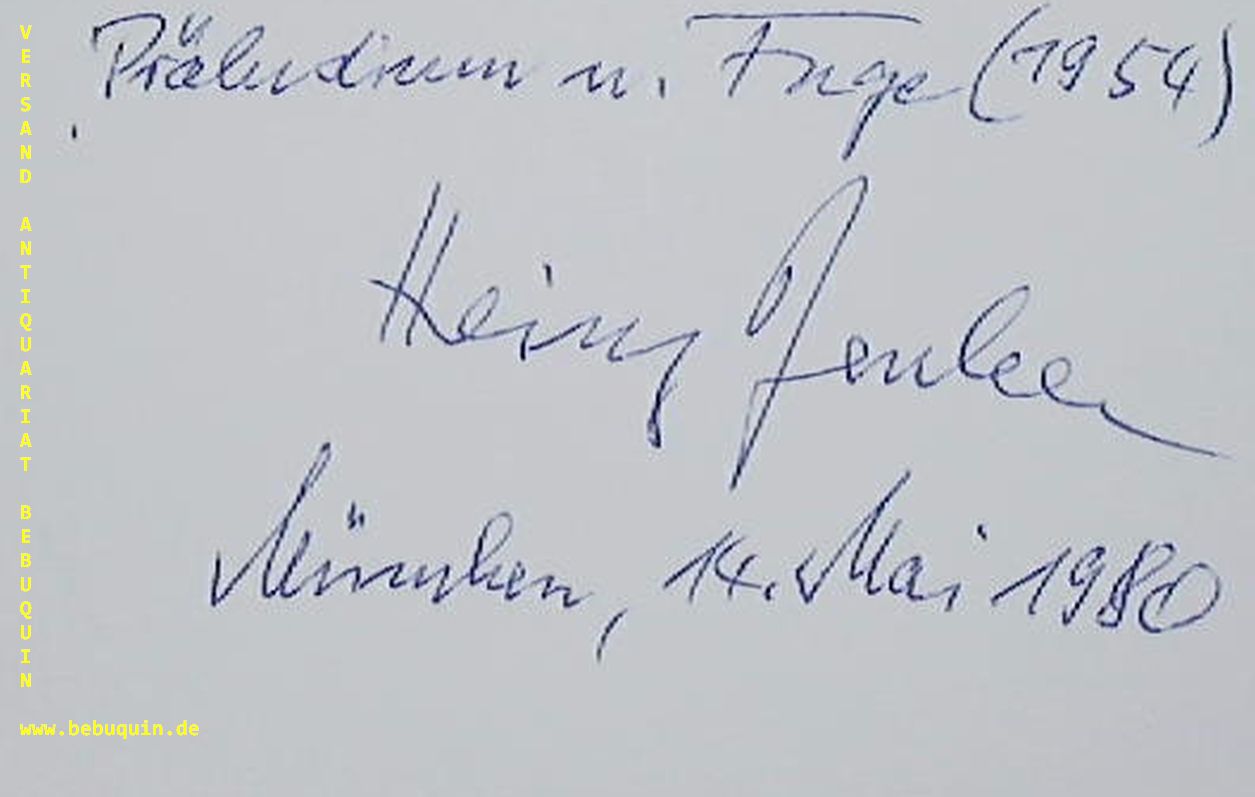 Präludium u. Fuge (1954)
Heinz Benker
München, 14. Mai 1980
VERSAND ANTIQUARIAT BEBUQUIN
www.bebuquin.de